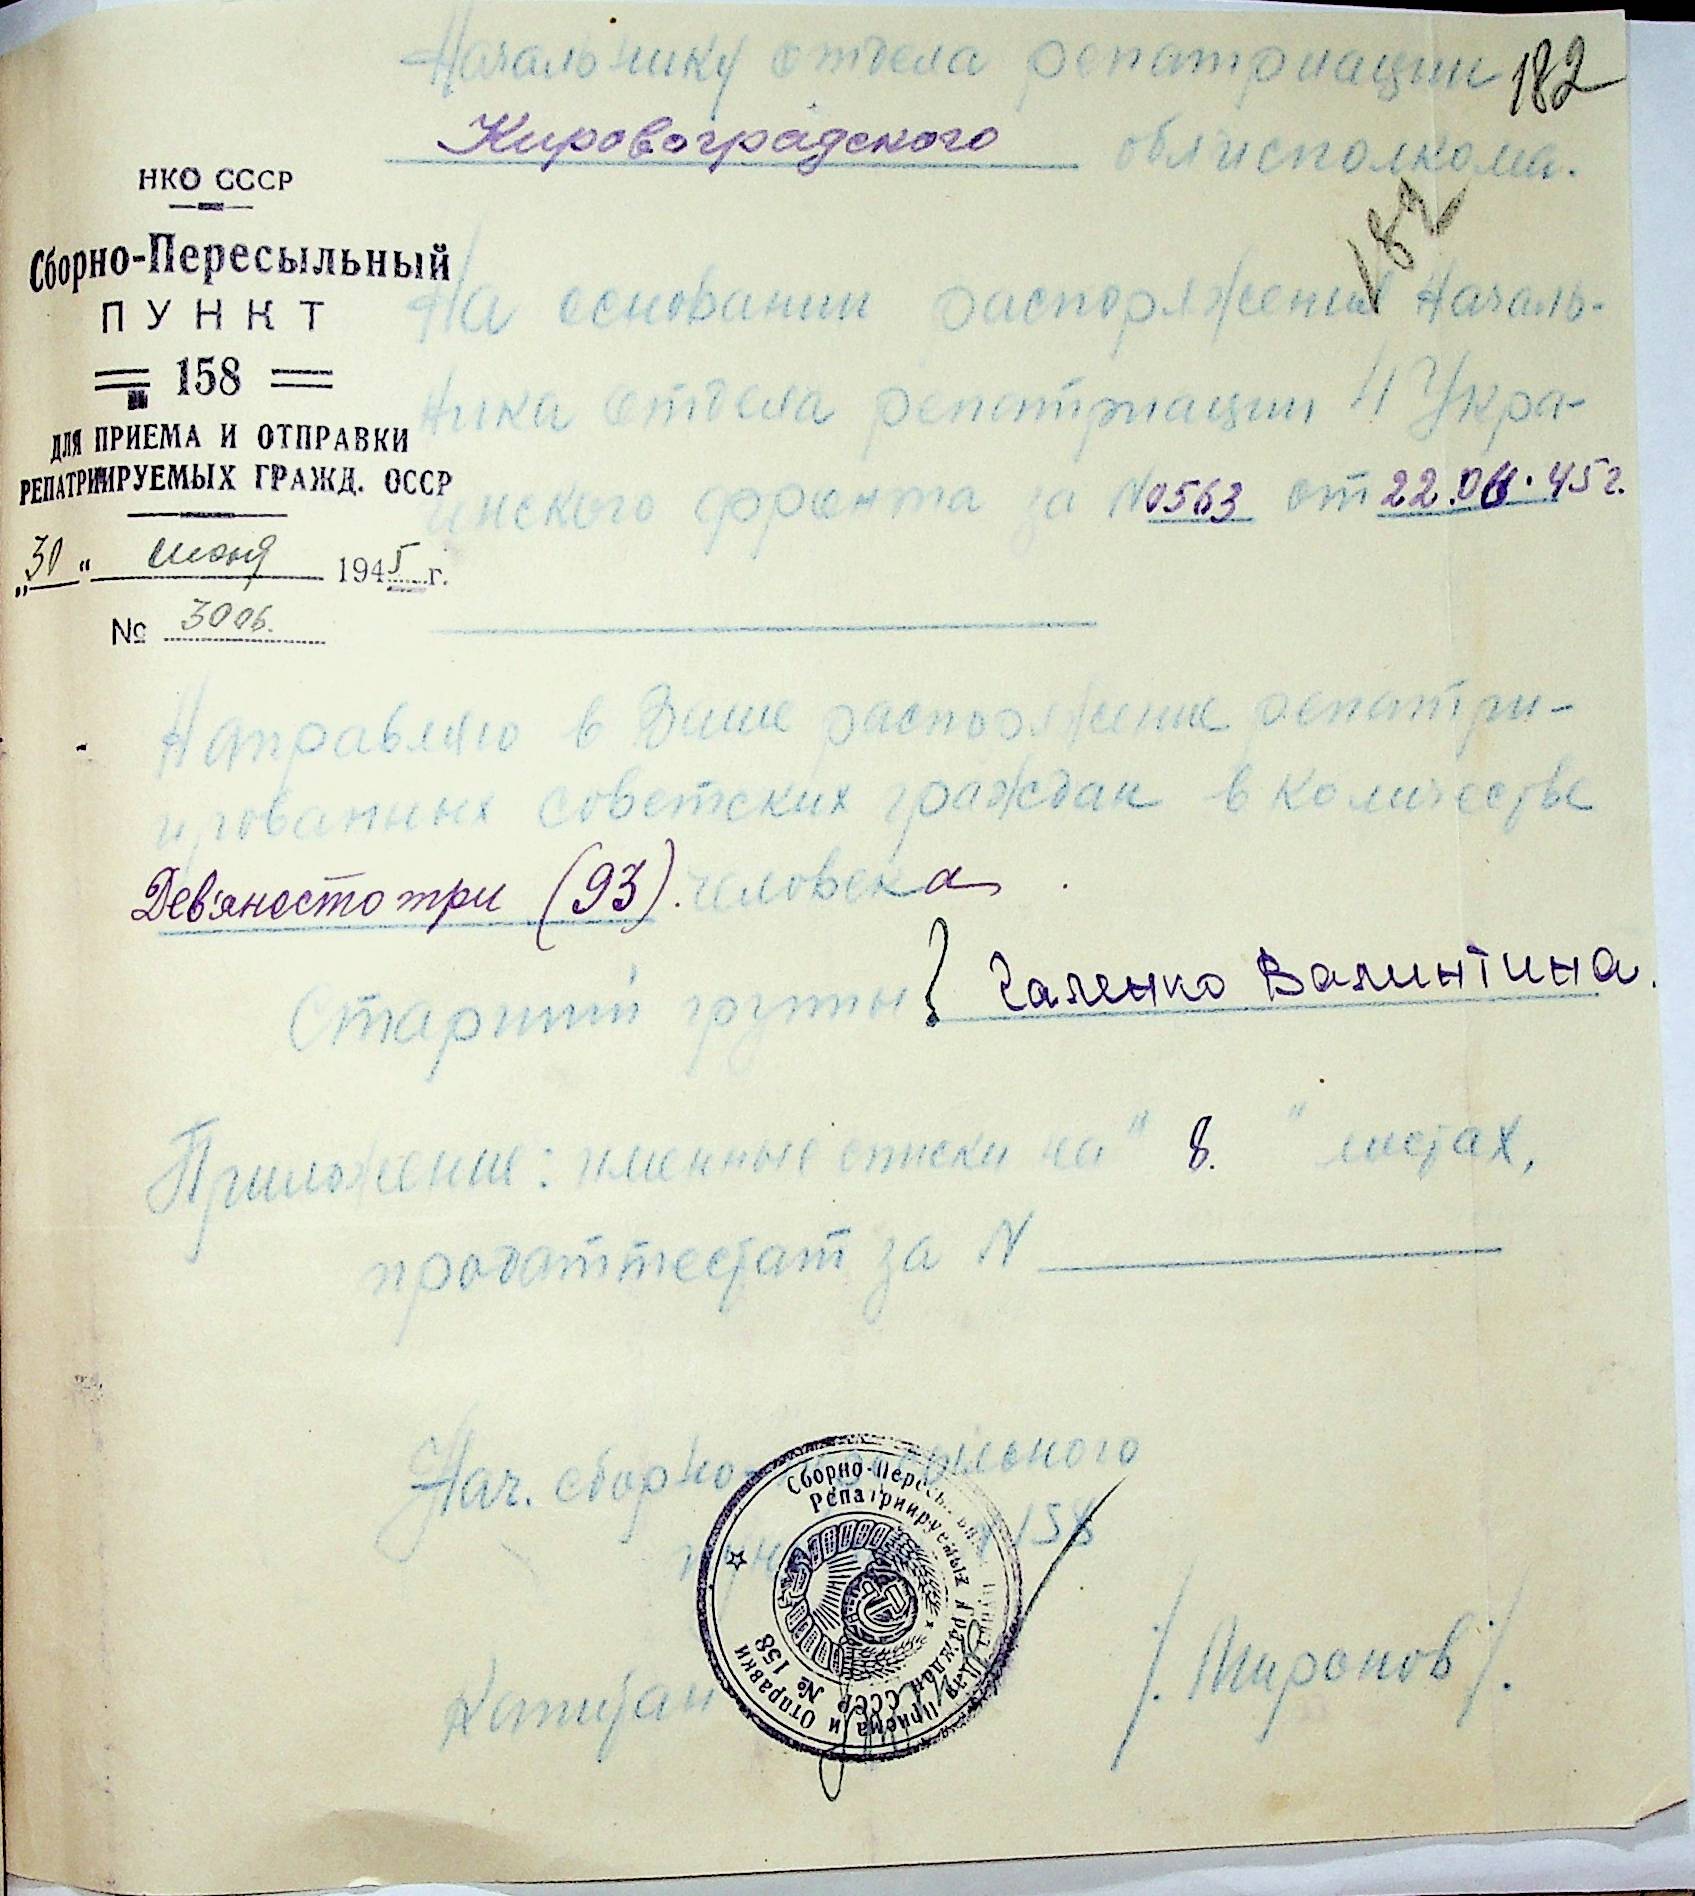 Начальнику отдела репатриации 182
Кировоградского облисполкома.
182
НКО СССР
Сборно-Пересыльный
ПУНКТ
158
ДЛЯ ПРИЕМА И ОТПРАВКИ
РЕПАТРИИРУЕМЫХ ГРАЖД. СССР
„30“ июня 1945 г.
№ 3006.
На основании распоряжения Началь-
ника отдела репатриации 4 Укра-
инского фронта за N 0563 от 22.06.45 г.
Направляю в Ваше распоряжение репатри-
ированных советских граждан в количестве
Девяносто три (93). человека.
Старший группы Галенко Валинтина.
Приложение: именные списки на " 8. " листах,
продаттестат за N
Нач. сборно-пересыльного
пункта 158
Капитан /. Миронов /.
Сборно-Пересыльный Пункт для Приема и Отправки
Репатриируемых Граждан СССР № 158